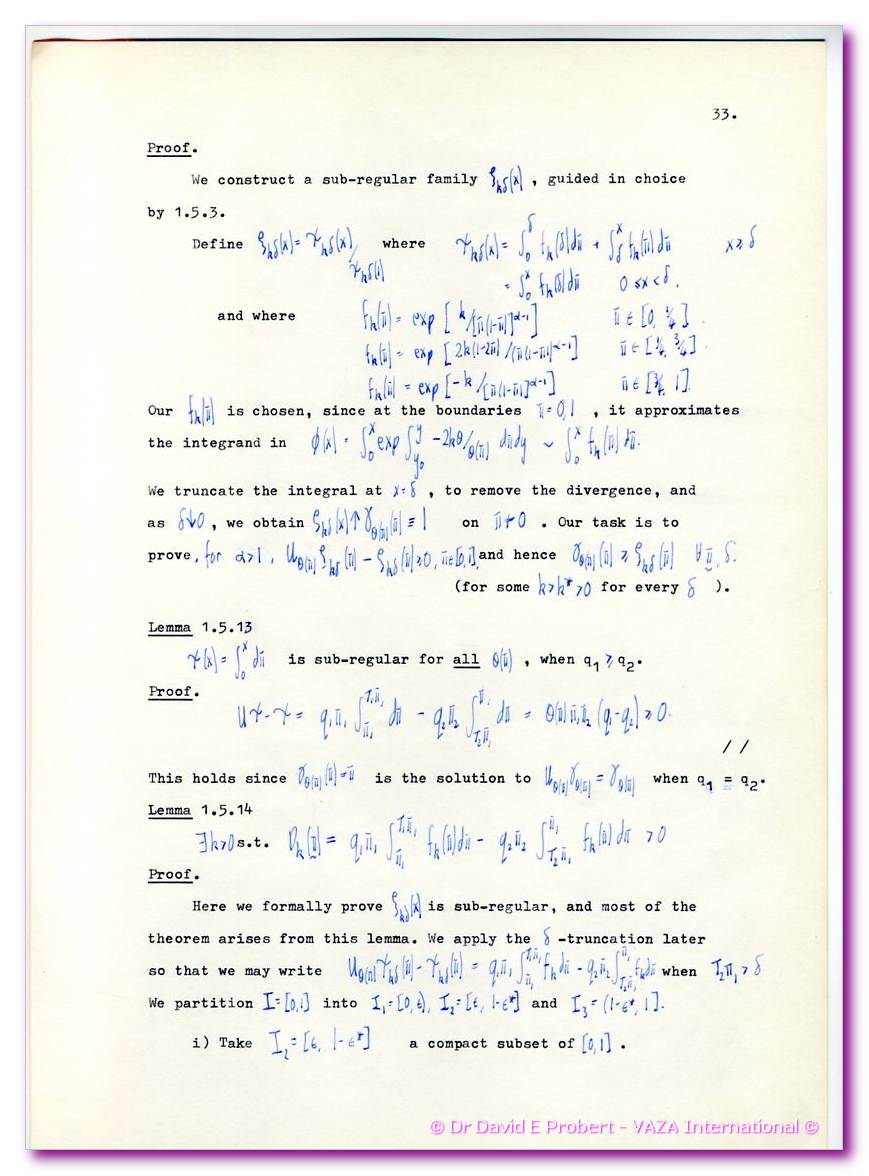 33.
Proof.
We construct a sub-regular family ξ_kδ(x) , guided in choice
by 1.5.3.
Define ξ_kδ(x) = ψ_kδ(x)/ψ_kδ(1) where ψ_kδ(x) = ∫_0^δ f_k(δ)dπ̄ + ∫_δ^x f_k(π̄)dπ̄ x ≥ δ
= ∫_0^x f_k(δ)dπ̄ 0 ≤ x < δ.
and where f_k(π̄) = exp [ k/[π̄(1-π̄)]^α-1 ] π̄ ∈ [0, ¼]
f_k(π̄) = exp [ 2k(1-2π̄)/(π̄(1-π̄))^α-1 ] π̄ ∈ [¼, ¾]
f_k(π̄) = exp [ -k/[π̄(1-π̄)]^α-1 ] π̄ ∈ [¾, 1].
Our f_k(π̄) is chosen, since at the boundaries π̄ = 0,1 , it approximates
the integrand in φ(x) = ∫_0^x exp ∫_y₀^y -2kθ/θ(π̄) dπ̄dy ~ ∫_0^x f_k(π̄) dπ̄.
We truncate the integral at x=δ , to remove the divergence, and
as δ↓0 , we obtain ξ_kδ(x) ↑ γ_θ(π̄)(π̄) ≡ 1 on π̄ ≠ 0 . Our task is to
prove, for α>1, U_θ(π̄) ξ_kδ(π̄) - ξ_kδ(π̄) ≥ 0, π̄∈[0,1], and hence γ_θ(π̄)(π̄) ≥ ξ_kδ(π̄) ∀ π̄, δ.
(for some k>k*>0 for every δ ).
Lemma 1.5.13
ψ(x) = ∫_0^x dπ̄ is sub-regular for all θ(π̄) , when q₁ ≥ q₂.
Proof.
Uψ-ψ = q₁π̄₁ ∫_π̄₁^T₁π̄₁ dπ̄ - q₂π̄₂ ∫_T₂π̄₁^π̄₁ dπ̄ = θ(π̄)π̄₁π̄₂ (q₁-q₂) ≥ 0.
//
This holds since γ_θ(π̄)(π̄)=π̄ is the solution to U_θ(π̄)γ_θ(π̄) = γ_θ(π̄) when q₁ = q₂.
Lemma 1.5.14
∃k>0 s.t. D_k(π̄) = q₁π̄₁ ∫_π̄₁^T₁π̄₁ f_k(π̄)dπ̄ - q₂π̄₂ ∫_T₂π̄₁^π̄₁ f_k(π̄)dπ̄ >0
Proof.
Here we formally prove ξ_kδ(x) is sub-regular, and most of the
theorem arises from this lemma. We apply the δ -truncation later
so that we may write U_θ(π̄)ψ_kδ(π̄) - ψ_kδ(π̄) = q₁π̄₁ ∫_π̄₁^T₁π̄₁ f_k dπ̄ - q₂π̄₂ ∫_T₂π̄₁^π̄₁ f_k dπ̄ when T₂π̄₁ > δ
We partition I=[0,1] into I₁=[0,ϵ), I₂=[ϵ, 1-ϵ*] and I₃=(1-ϵ*, 1].
i) Take I₂=[ϵ, 1-ϵ*] a compact subset of [0,1] .
© Dr David E Probert – VAZA International ©